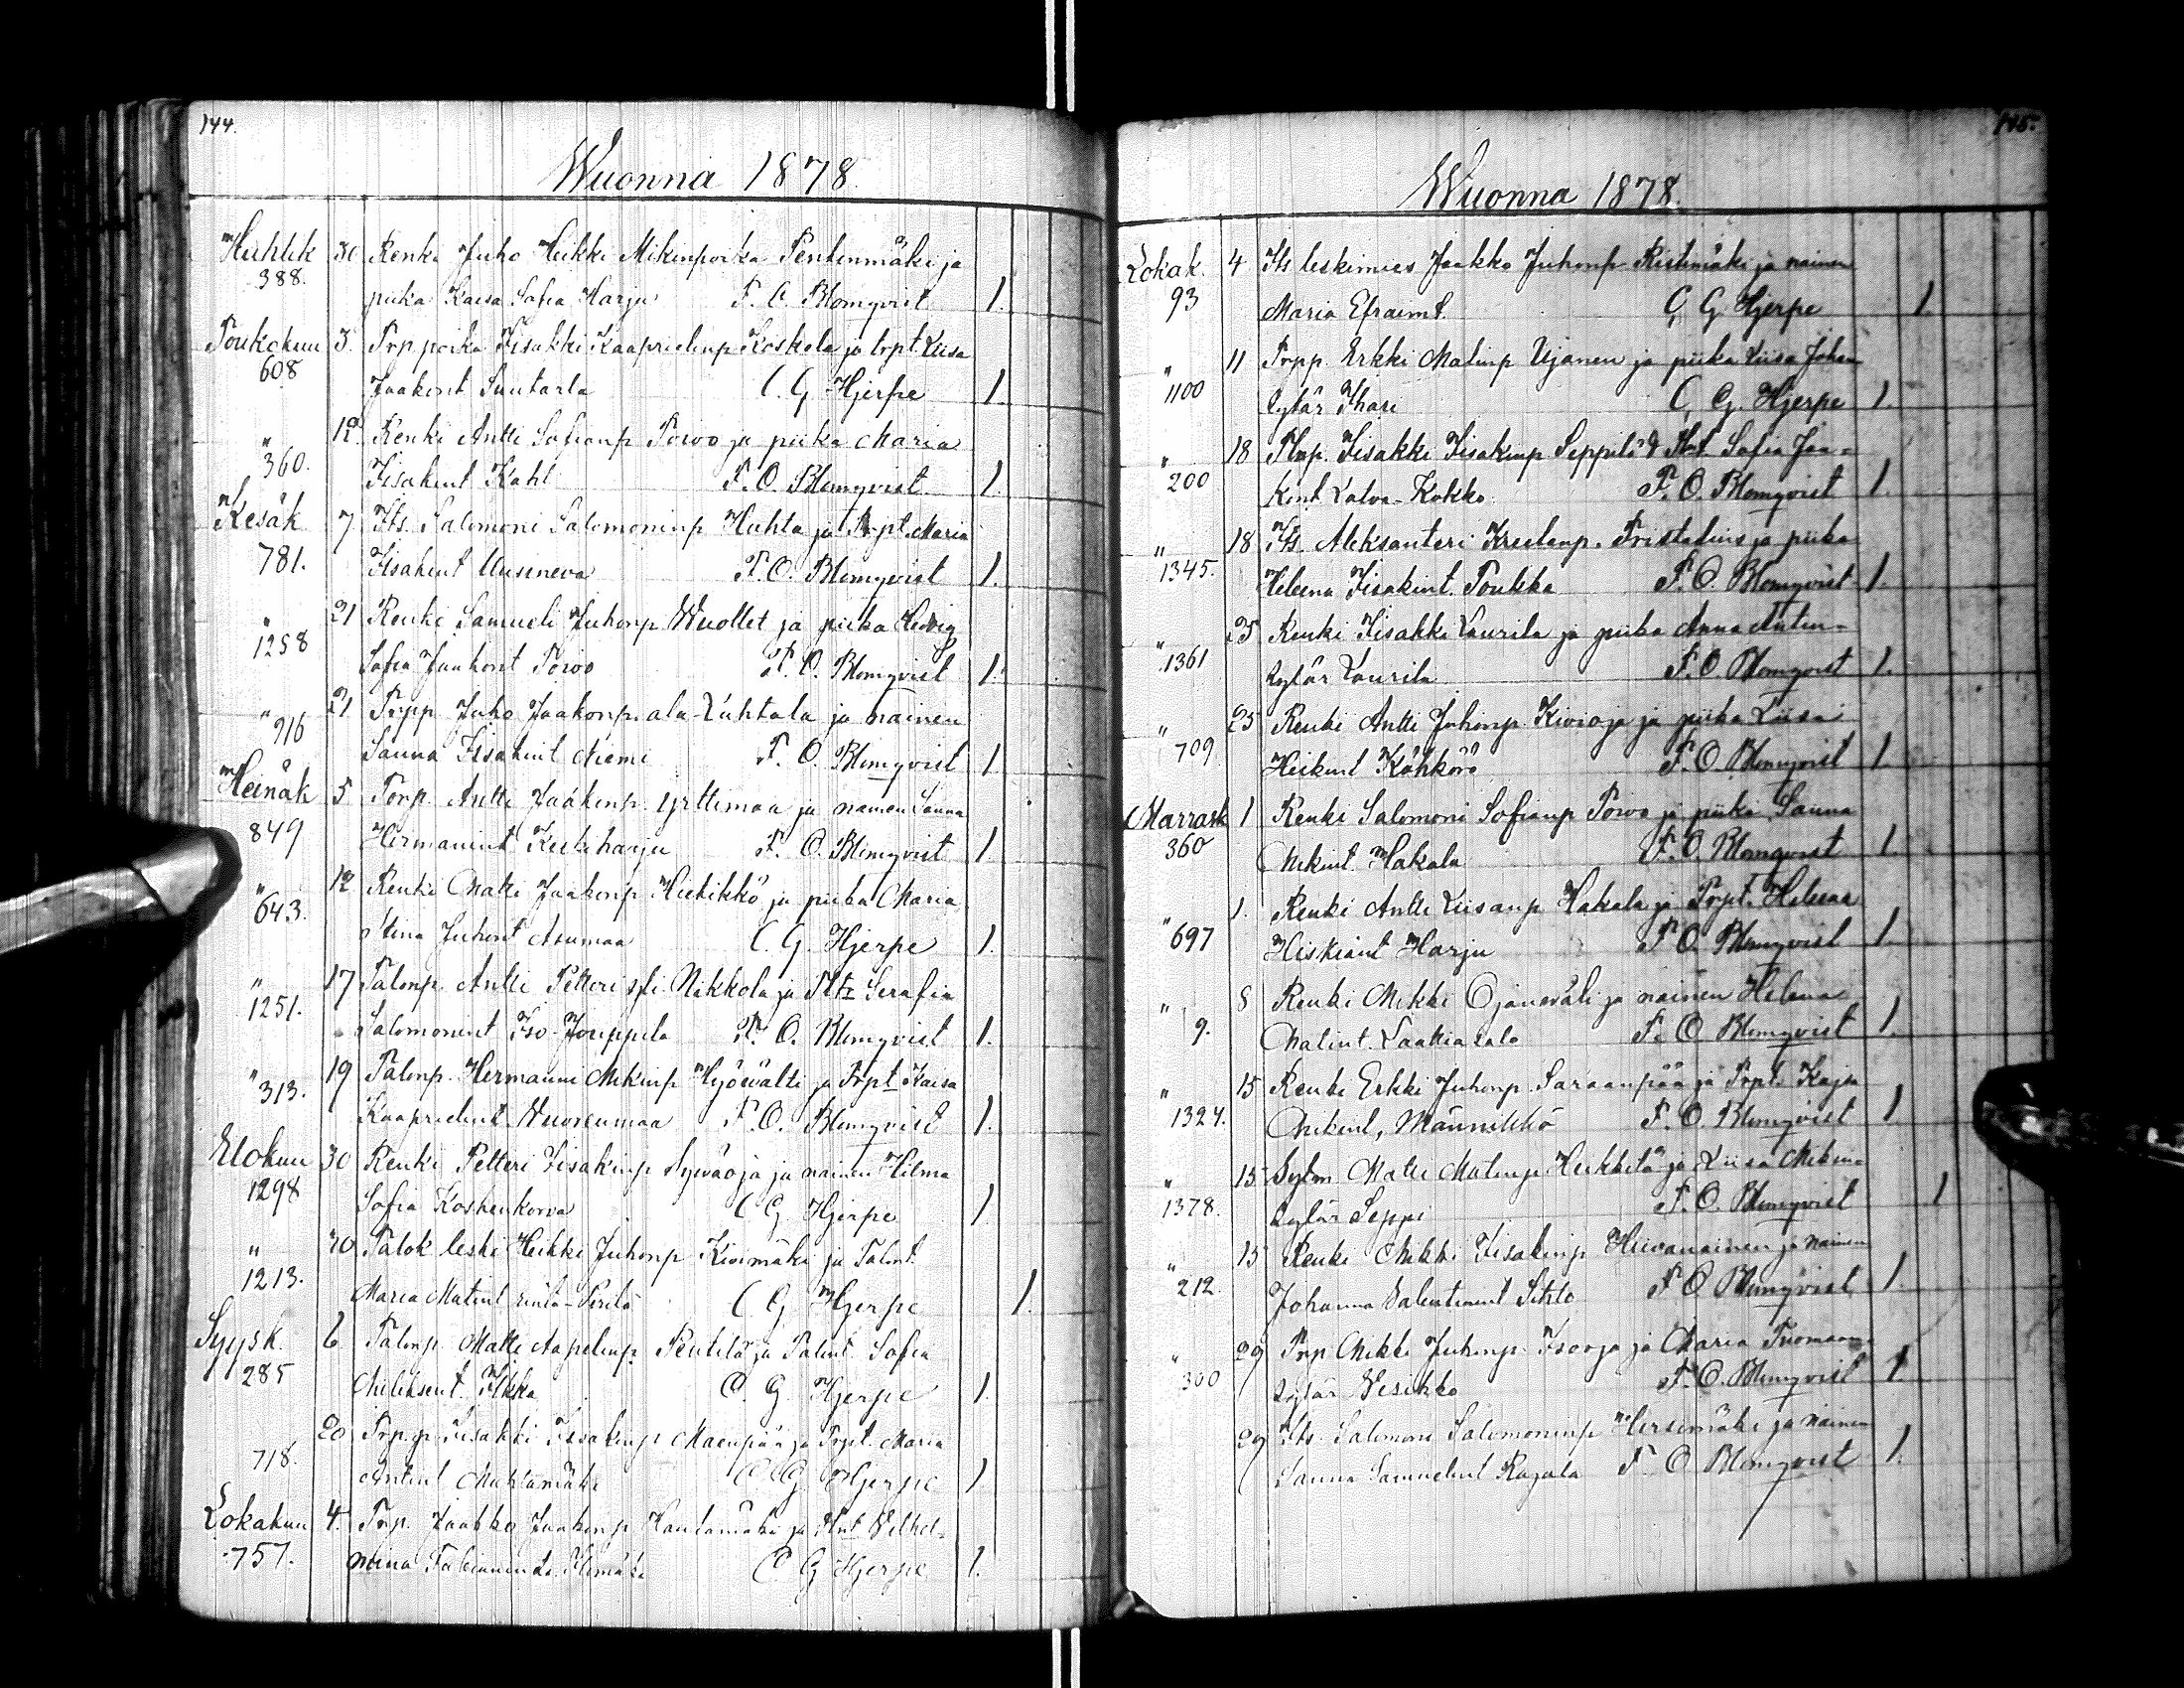 144.
Wuonna 1878.
Huhtik 30 Renki Juho Heikki Mikinpoika Pentinmäki ja
388. piika Kaisa Sofia Harju F. O. Blomqvist 1.
Toukokuu 3. Trp poika Iisakki Kaaprielinp Koskela ja trpt. Liisa
608 Jaakont Suutarla C. G. Hjerpe 1.
" 12. Renki Antti Sofianp Porvo ja piika Maria
360. Iisakint Kahl F. O. Blomqvist 1.
Kesäk 7 Its. Salomoni Salomoninp Huhta ja Trpt. Maria
781. Iisakint Uusineva F. O. Blomqvist 1.
" 21 Renki Samueli Juhonp Wuollet ja piika Hedvig
1258 Sofia Jaakont Porvo F. O. Blomqvist 1.
" 21 Trpp Juho Jaakonp. ala-Luhtala ja nainen
916 Sanna Iisakint Niemi F. O. Blomqvist 1.
Heinäk 5 Torp. Antti Jaakonp. Yrttimaa ja nainen Sanna
849 Hermanint Keskiharju F. O. Blomqvist 1.
" 12 Renki Matti Jaakonp Hietikkö ja piika Maria
643. Stina Juhont Asumaa C. G. Hjerpe 1.
" 17 Talonp. Antti Petteri Nikkola ja Serafia
1251. Salomonint Iso-Jouppila F. O. Blomqvist 1.
" 19 Talonp. Hermanni Mikinp Hyöwälti ja Trpt. Kaisa
313. Kaaprielint Wuorenmaa F. O. Blomqvist 1.
Elokuu 30 Renki Petteri Iisakinp Sywäoja ja nainen Hilma
1298 Sofia Koskenkorva C G. Hjerpe 1.
" 30 Talok leski Heikki Juhonp Kivimäki ja Talont.
1213. Maria Matint C G Hjerpe 1.
Syysk. 6 Talonp Matti Aapelinp Penttilä ja Talont. Sofia
285 Ilkka C. G. Hjerpe 1.
20 Trp.p. Iisakki Iisakinp Maenpää ja Trpt. Maria
718. Antint Muhtamäki C G. Hjerpe 1.
Lokakuu 4. Trp. Jaakko Jaakonp Rautamäki ja Vilhel-
757. mina C G Hjerpe 1.
145.
Wuonna 1878.
Lokak. 4 Its leskimies Jaakko Juhonp Ristimäki ja nainen
93 Maria Efraimt. C G Hjerpe 1.
" 11 Trpp. Erkki Matinp Ujanen ja piika Liisa Johan
1100 tytär Ihari C. G. Hjerpe 1.
" 18 Iisakki Iisakinp Seppilä Sofia Jaa-
200 kont Latva-Kokko F. O. Blomqvist 1.
" 18 Its. Aleksanteri Kreetanp. Fristadius ja piika
1345. Heleena Iisakint. Toukka F. O. Blomqvist 1.
" 25 Renki Iisakki Laurila ja piika Anna Antin-
1361 tytär Laurila F. O. Blomqvist 1.
" 25 Renki Antti Juhonp Kivioja ja piika Liisa
709 Heikint Köhkörö F. O. Blomqvist 1.
Marrask 1 Renki Salomoni Sofianp Porvo ja piika Sanna
360 Mikint. Hakala F. O. Blomqvist 1.
" 1. Renki Antti Liisanp Hakala ja Trpt. Helena
697 Hiskiant Harju F. O. Blomqvist 1.
" 8 Renki Mikki Ojanwäli ja nainen Helena
9. Matint. Laattiasalo F. O. Blomqvist 1.
" 15 Renki Erkki Juhonp. Saraanpää ja Trpt. Kajsa
1324. Mikint, Männikkö F. O. Blomqvist 1.
" 15 Matti Matinp Heikkilä ja Liisa Mikin-
1378. tytär Seppi F. O. Blomqvist 1
" 15 Renki Mikki Iisakinp Hiivanainen ja nainen
212. Johanna Valentinint Sihto F O Blomqvist 1.
" 29 Trp Mikki Juhonp. Isooja ja Maria Tuomaan-
300 tytär Vesikko F. O. Blomqvist 1
29 Its. Salomoni Salomoninp Hirsimäki ja nainen
Sanna Samuelint Rajala F. O. Blomqvist 1.